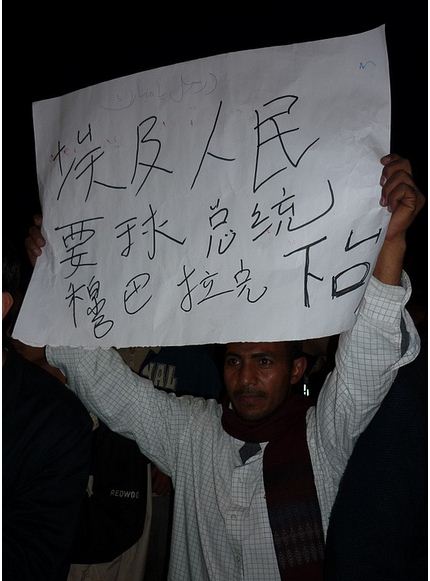 埃及人民
要球总统
穆巴拉克 下台
NAL
REDWOO